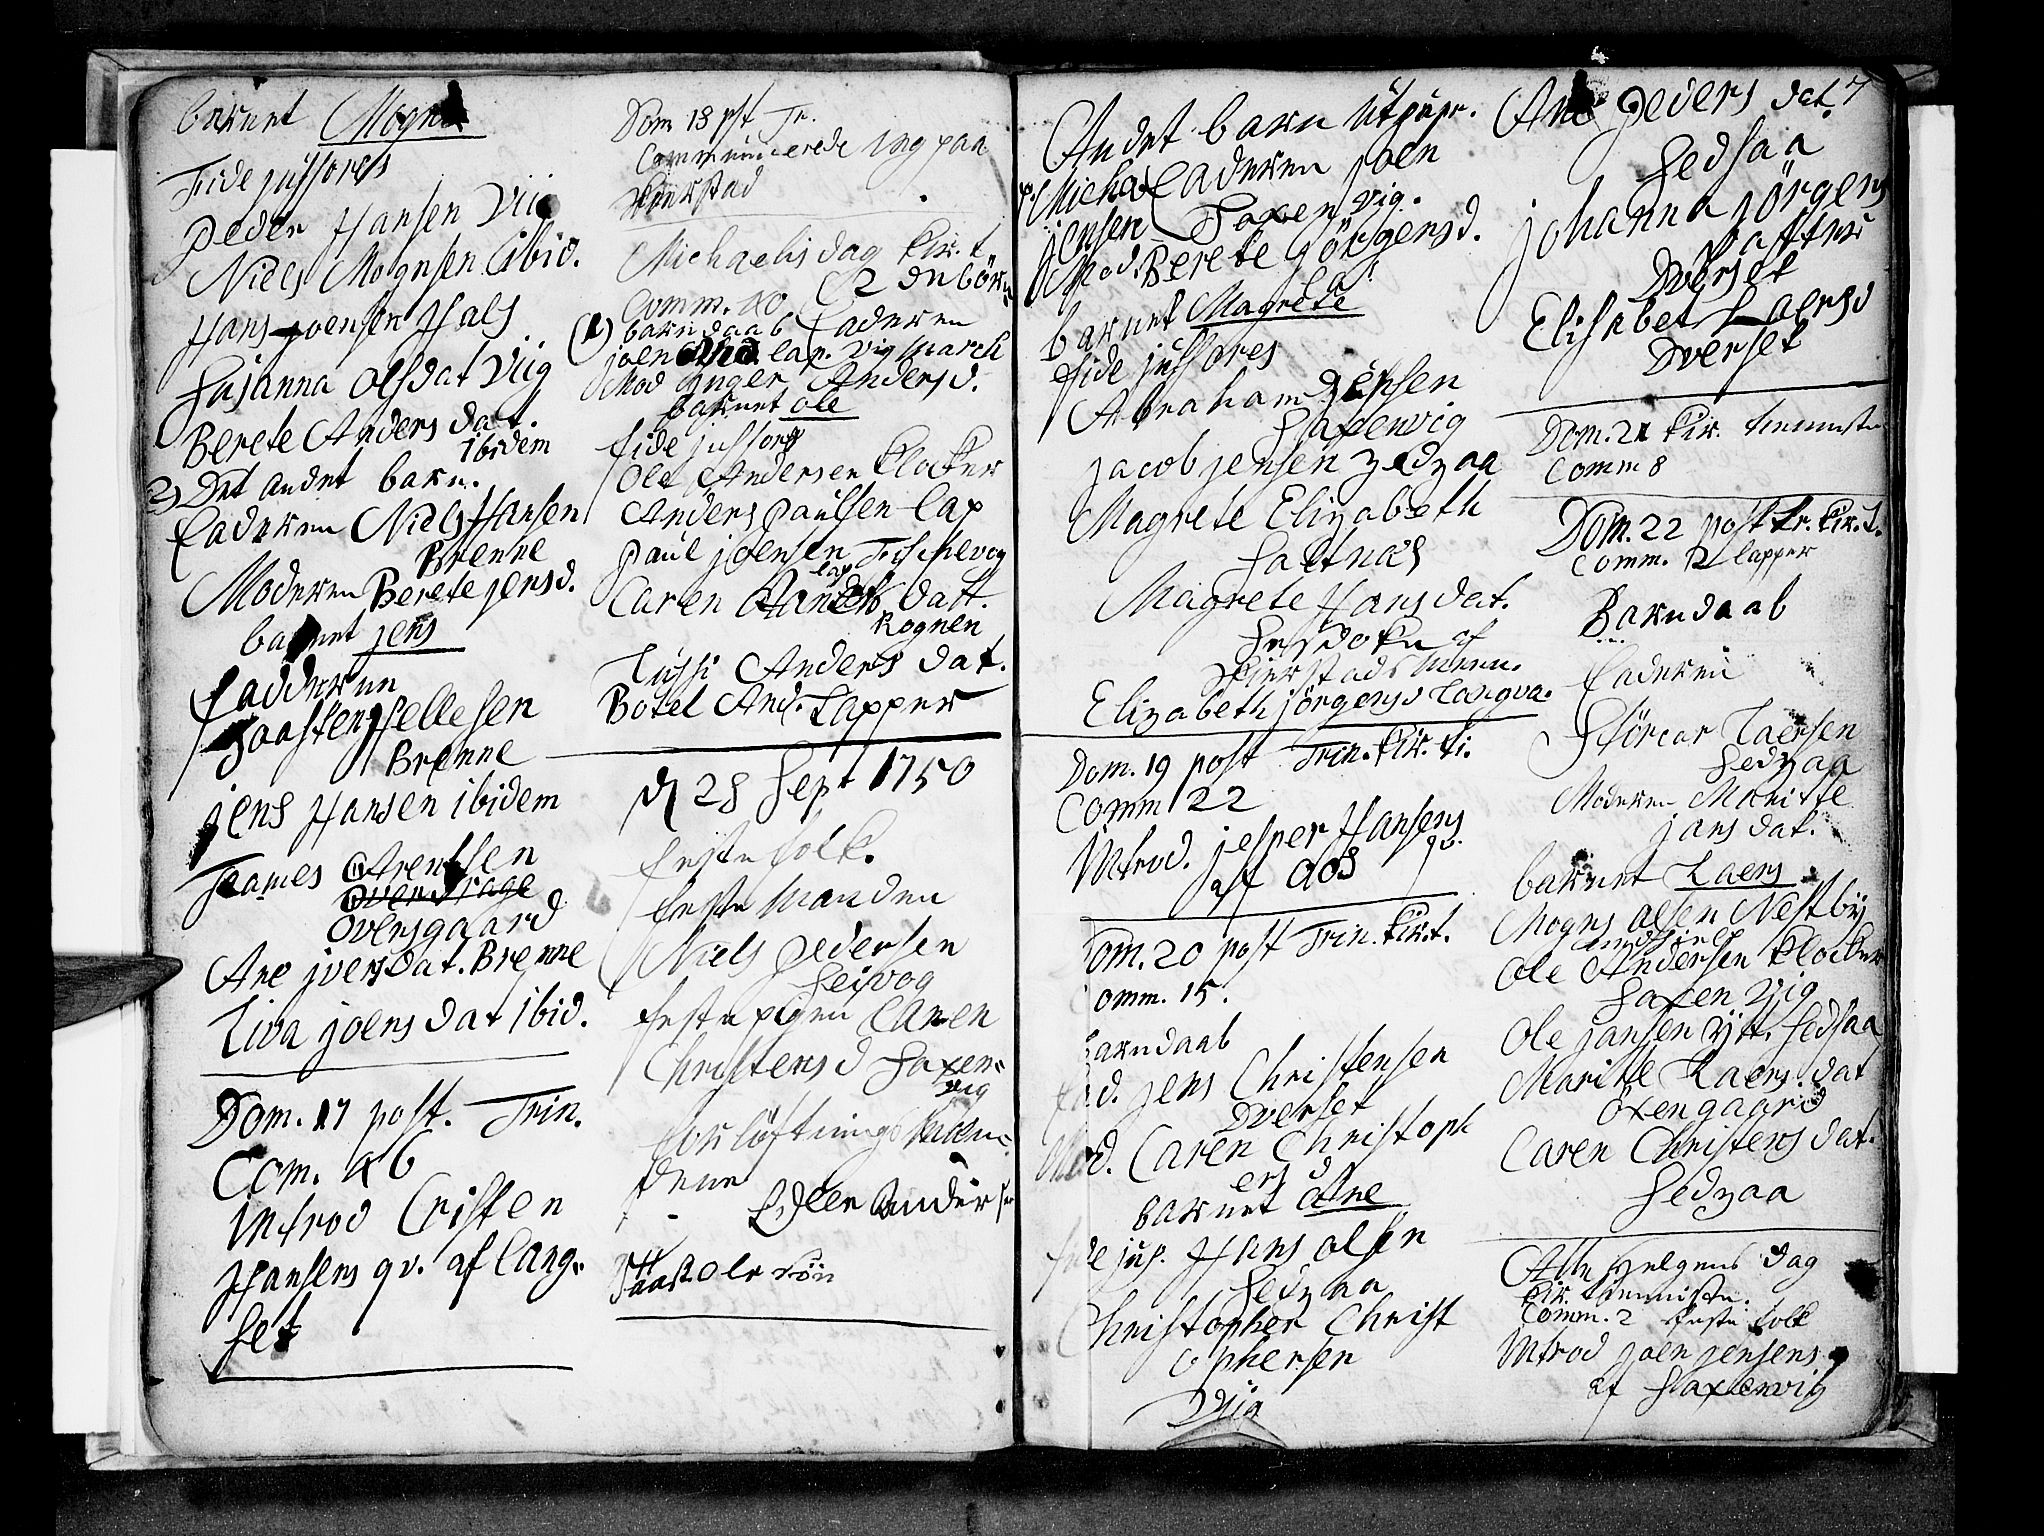 barnet Mogns
Fidejussores
Peder Hansen Viig
Niels Mognsen ibid.
Hans Joensen Hals
Susanna Olsdat Viig
Berete Anders dat.
ibidem
2) Det andet barn.
Faderen Niels Hansen
Brenne
Moderen Berete Jensd.
barnet Jens
Fadderne
Haasten Hellesen
Brenne
Jens Hansen ibidem
Arentsen
Oversgaard
Ane Iversdat. Brenne
Liva Joensdat ibid.
Dom. 17 post. Trin.
Com. 16
Introd Cristen
Hansens qv. af Lang-
set
Dom 18 pst Tr.
Communicerede ing paa
Skierstad
Michaelis dag kir. t
Comm. 20 (2 de börn
(1) barn daab Faderen
Joen And. lap. Vig march
Mod Inger Andersd.
barnet Ole
fidejussores
Ole Andersen klocker
Anders Paulsen lap
Paul Joensen lap Fischevog
Caren Anders datt.
Rognen
Lussi Anders dat.
Botel And. Lapper
d 28 Sept 1750
feste folk.
feste Manden
Niels Pedersen
Seivog
feste pigen Caren
Christensd Saxen-
vig
forlöftnings
Ander
7
Andet barn
Faderen Joen
Micha
Jensen Saxenvig.
Mod. Berete Jörgensd.
barnet Magrete
fidejussores
Abraham Jensen
Saxenvig
Jacob Jensen Sedzaa
Magrete Elizabeth
Saltnæs
Magrete Hans dat.
af
Skierstads
Elizabeth Jörgensd Langva.
Dom. 19 post Trin. kir. ti.
Comm 22
Introd. Jesper Hansens
qv.
af Aos
Dom. 20 post Trin. kir. t.
Comm. 15.
barndaab
Fad. Jens Christensen
Dverset
Mod. Caren Christoph
ers d
barnet Ane
fidejus. Hans Olsen
Sedzaa
Christopher Christ
ophersen
Viig
Ane Peders dat.
Sedsaa
Johanna Jörgens
datter
Dverset
Elisabet Laersd
Dverset
Dom. 21 kir. tienneste
Comm 8
Dom. 22 post tr. kir. t.
Comm. 12 lapper
Barndaab
Faderen
Störcar Laersen
Sedzaa
Moderen Maritte
Jans dat.
barnet Laers
Mogns Olsen Nestby
Ole Andersen klocker
Saxenvig
Ole Jansen Ytt. Sedsaa
Maritte Laers. dat
Öxengaard
Caren Christens dat.
Sedzaa
Alle Helgens dag
kir. tienniste.
Comm. 2 feste folk
Introd Joen Jensens
af Saxenvig